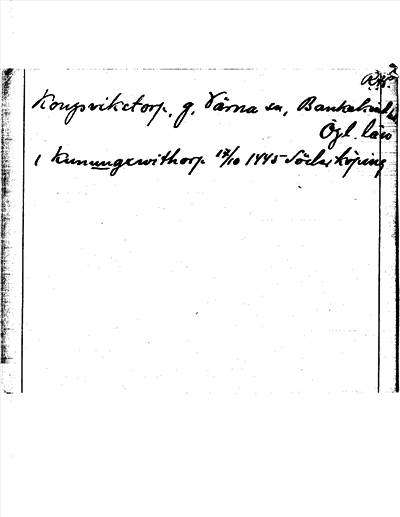 Kongsviketorp, g. Värna sn, Bankekinds
Ögl. län
i Kunungxwithorp 12/10 1445 Söderköping